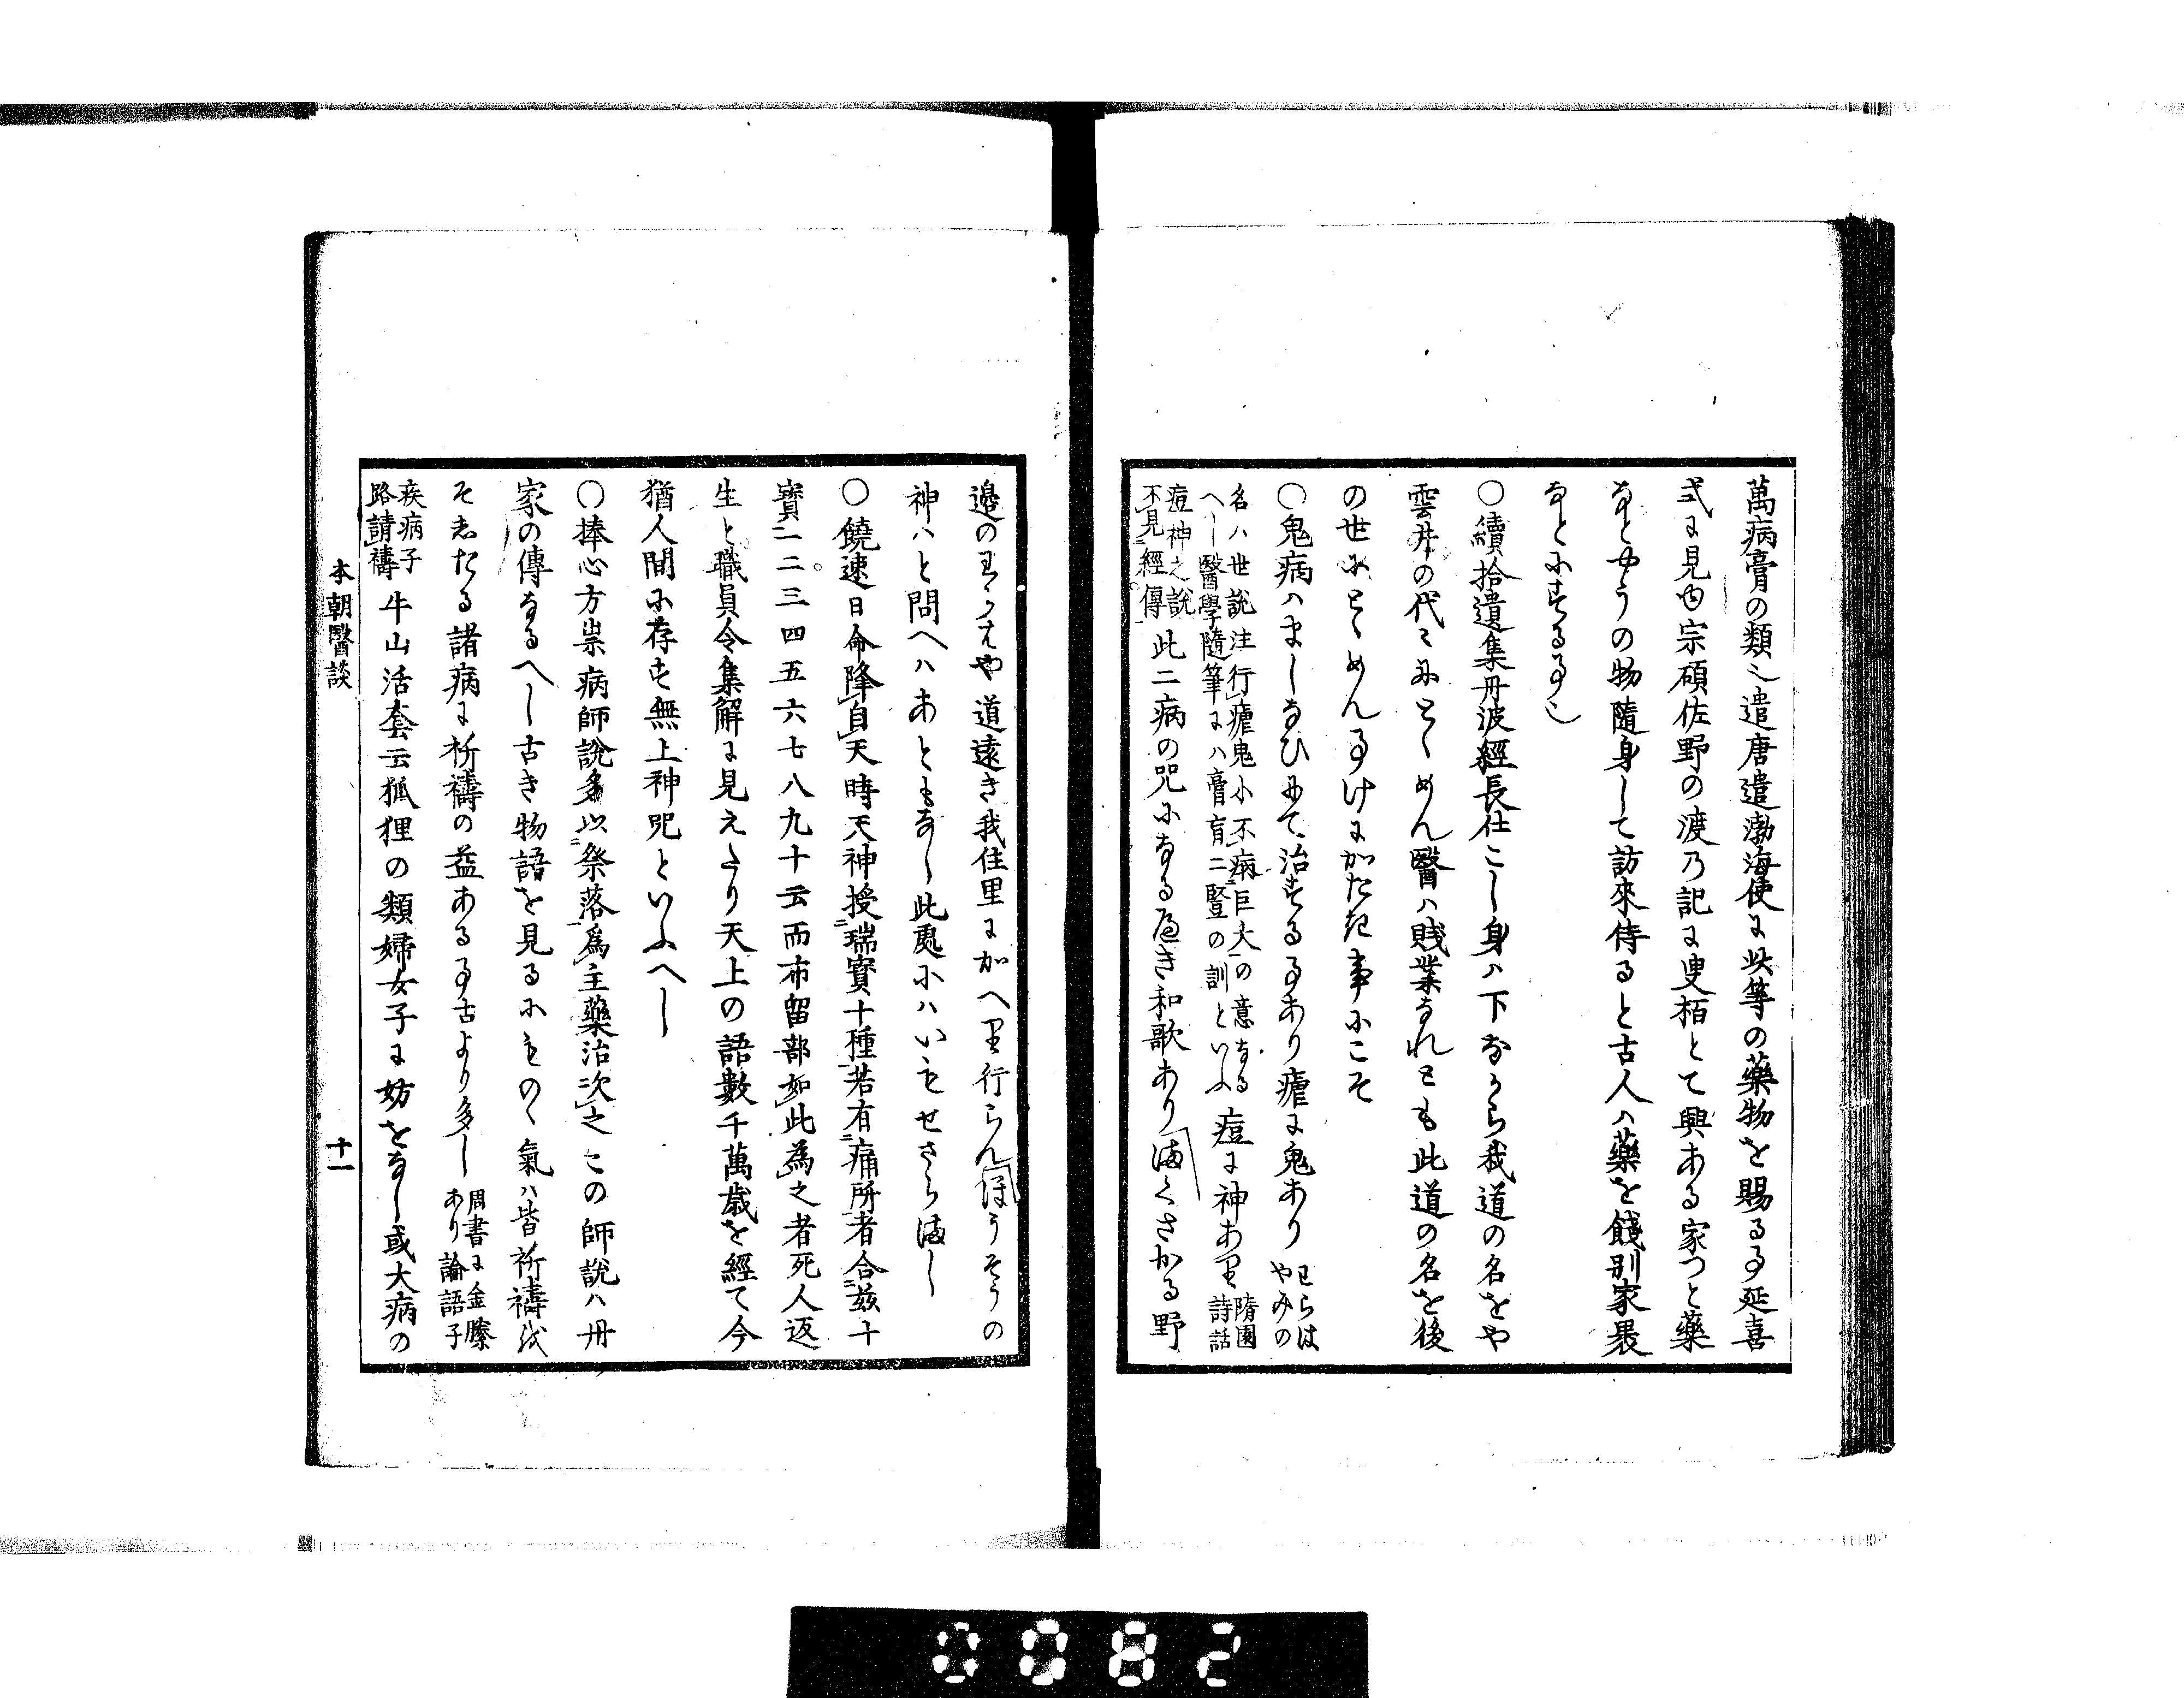 萬病膏の類也遣唐遣渤海使に此等の藥物を賜る事延喜
式に見ゆ宗碩佐野の渡乃記に叟栢とて興ある家つと藥
なとやうの物隨身して訪來侍ると古人ハ藥を餞別家褁
なとにする事也
〇續拾遺集丹波經長仕こし身ハ下なから我道の名をや
雲井の代々にとゝめん醫ハ賎業なれとも此道の名を後
の世にとゝめん事けにかたき事にこそ
〇鬼病ハましなひにて治する事あり瘧に鬼あり わらは
やみの
名ハ世説注行瘧鬼小不病巨大の意なる
へし醫學隨筆にハ膏肓二豎の訓といふ 痘に神あり 隋園
詩話
痘神之説
不見經傳 此二病の咒になるへき和歌あり 満くさかる野
邉の
や道遠き我住里にかへり行らん ほうそうの
神ハと問へハあともなし此處にハいもせさら満し
〇饒速日命降自天時天神授瑞寳十種若有痛所者合茲十
寳一二三四五六七八九十云而布留部如此為之者死人返
生と職員令集解に見えたり天上の語數千萬歳を經て今
猶人間に存す無上神咒といふへし
〇捧心方祟病師説多以祭落爲主藥治次之この師説ハ丹
家の傳なるへし古き物語を見るにものゝ氣ハ皆祈禱
そしたる諸病に祈禱の益ある事古より多し 周書に金縢
あり論語子
疾病子
路請禱 牛山活套云狐狸の類婦女子に妨をなし或大病の
本朝醫談 十一
0082